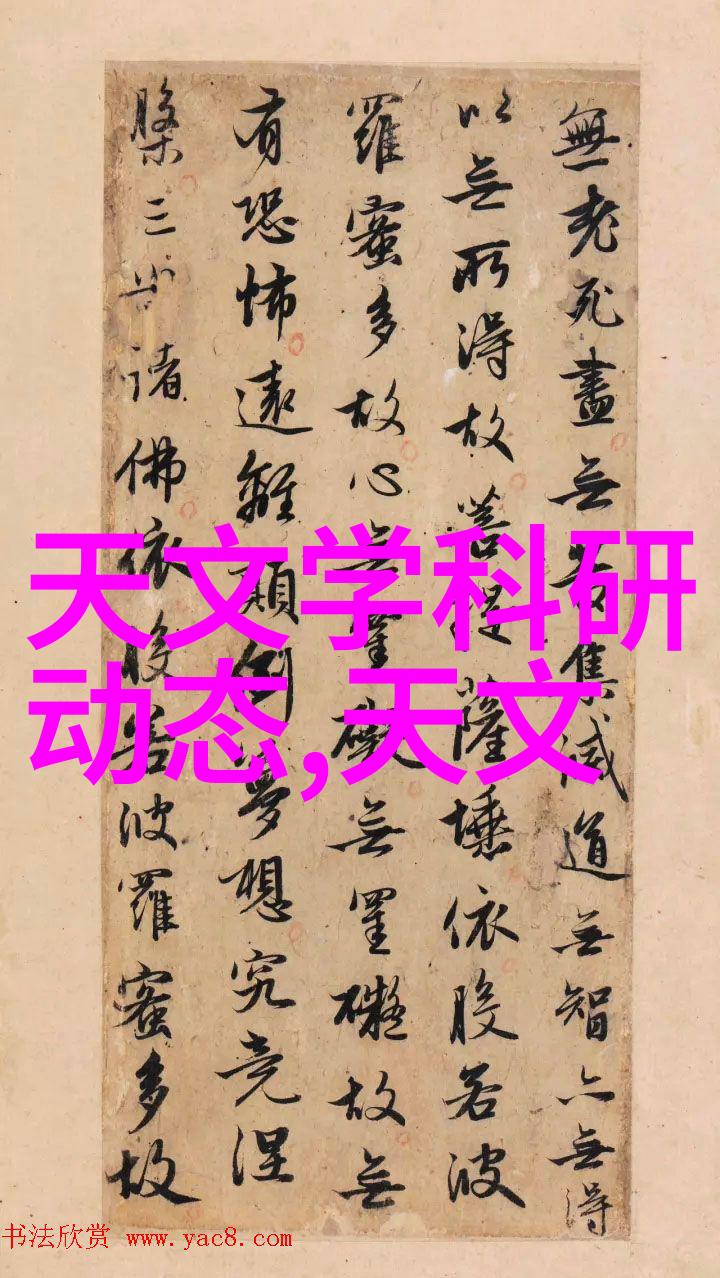 無老死盡無苦集滅道無智亦無得
以無所得故菩提薩埵依般若波
羅蜜多故心無罣礙無罣礙故無
有恐怖遠離顛倒夢想究竟涅
槃三世諸佛依般若波羅蜜多故
天文学科研
动态,天文
书法欣赏 www.yac8.com